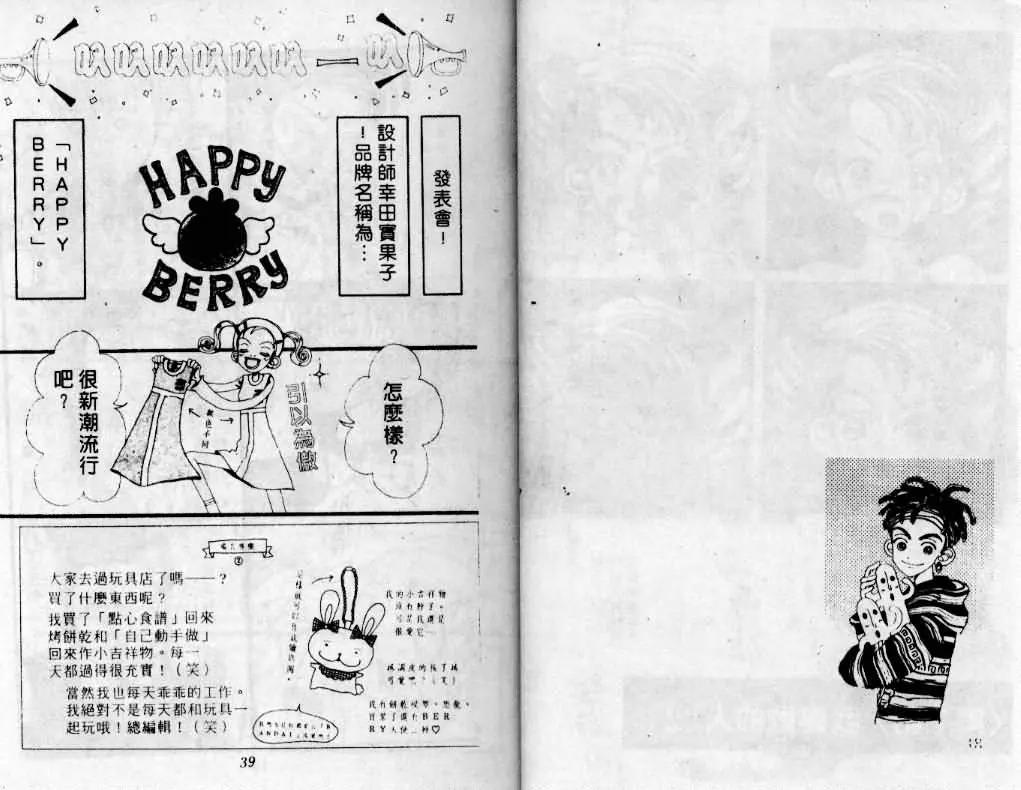 叭叭叭叭叭叭—叭
發表會!
設計師幸田實果子
!品牌名稱為…
「HAPPY
BERRY」。
HAPPY
BERRY
怎麼樣?
引以為傲
很新潮流行
吧?
大家去過玩具店了嗎——?
買了什麼東西呢?
我買了「點心食譜」回來
烤餅乾和「自己動手做」
回來作小吉祥物。每一
天都過得很充實!(笑)
當然我也每天乖乖的工作。
我絕對不是每天都和玩具一
起玩哦!總編輯!(笑)
我的小吉祥物
沒有脖子。
可是我還是
很愛它—
39